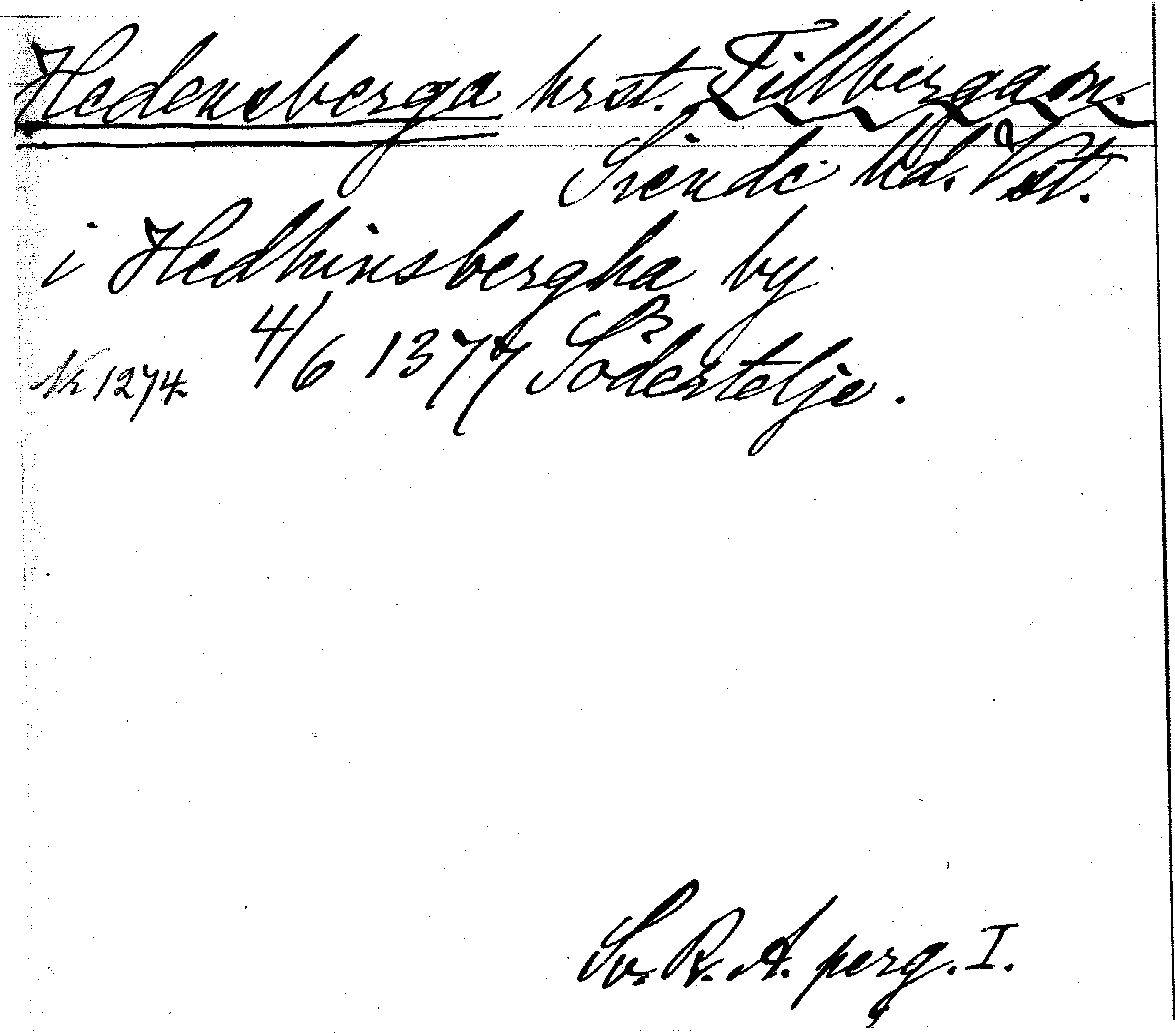 Hedensberga hrst. Tillberga sn.
Siende hd. Vst.
i Hedhinsbergha by
Nr 1274 4/6 1377 Södertelje.
Sv. R. A. perg. I.